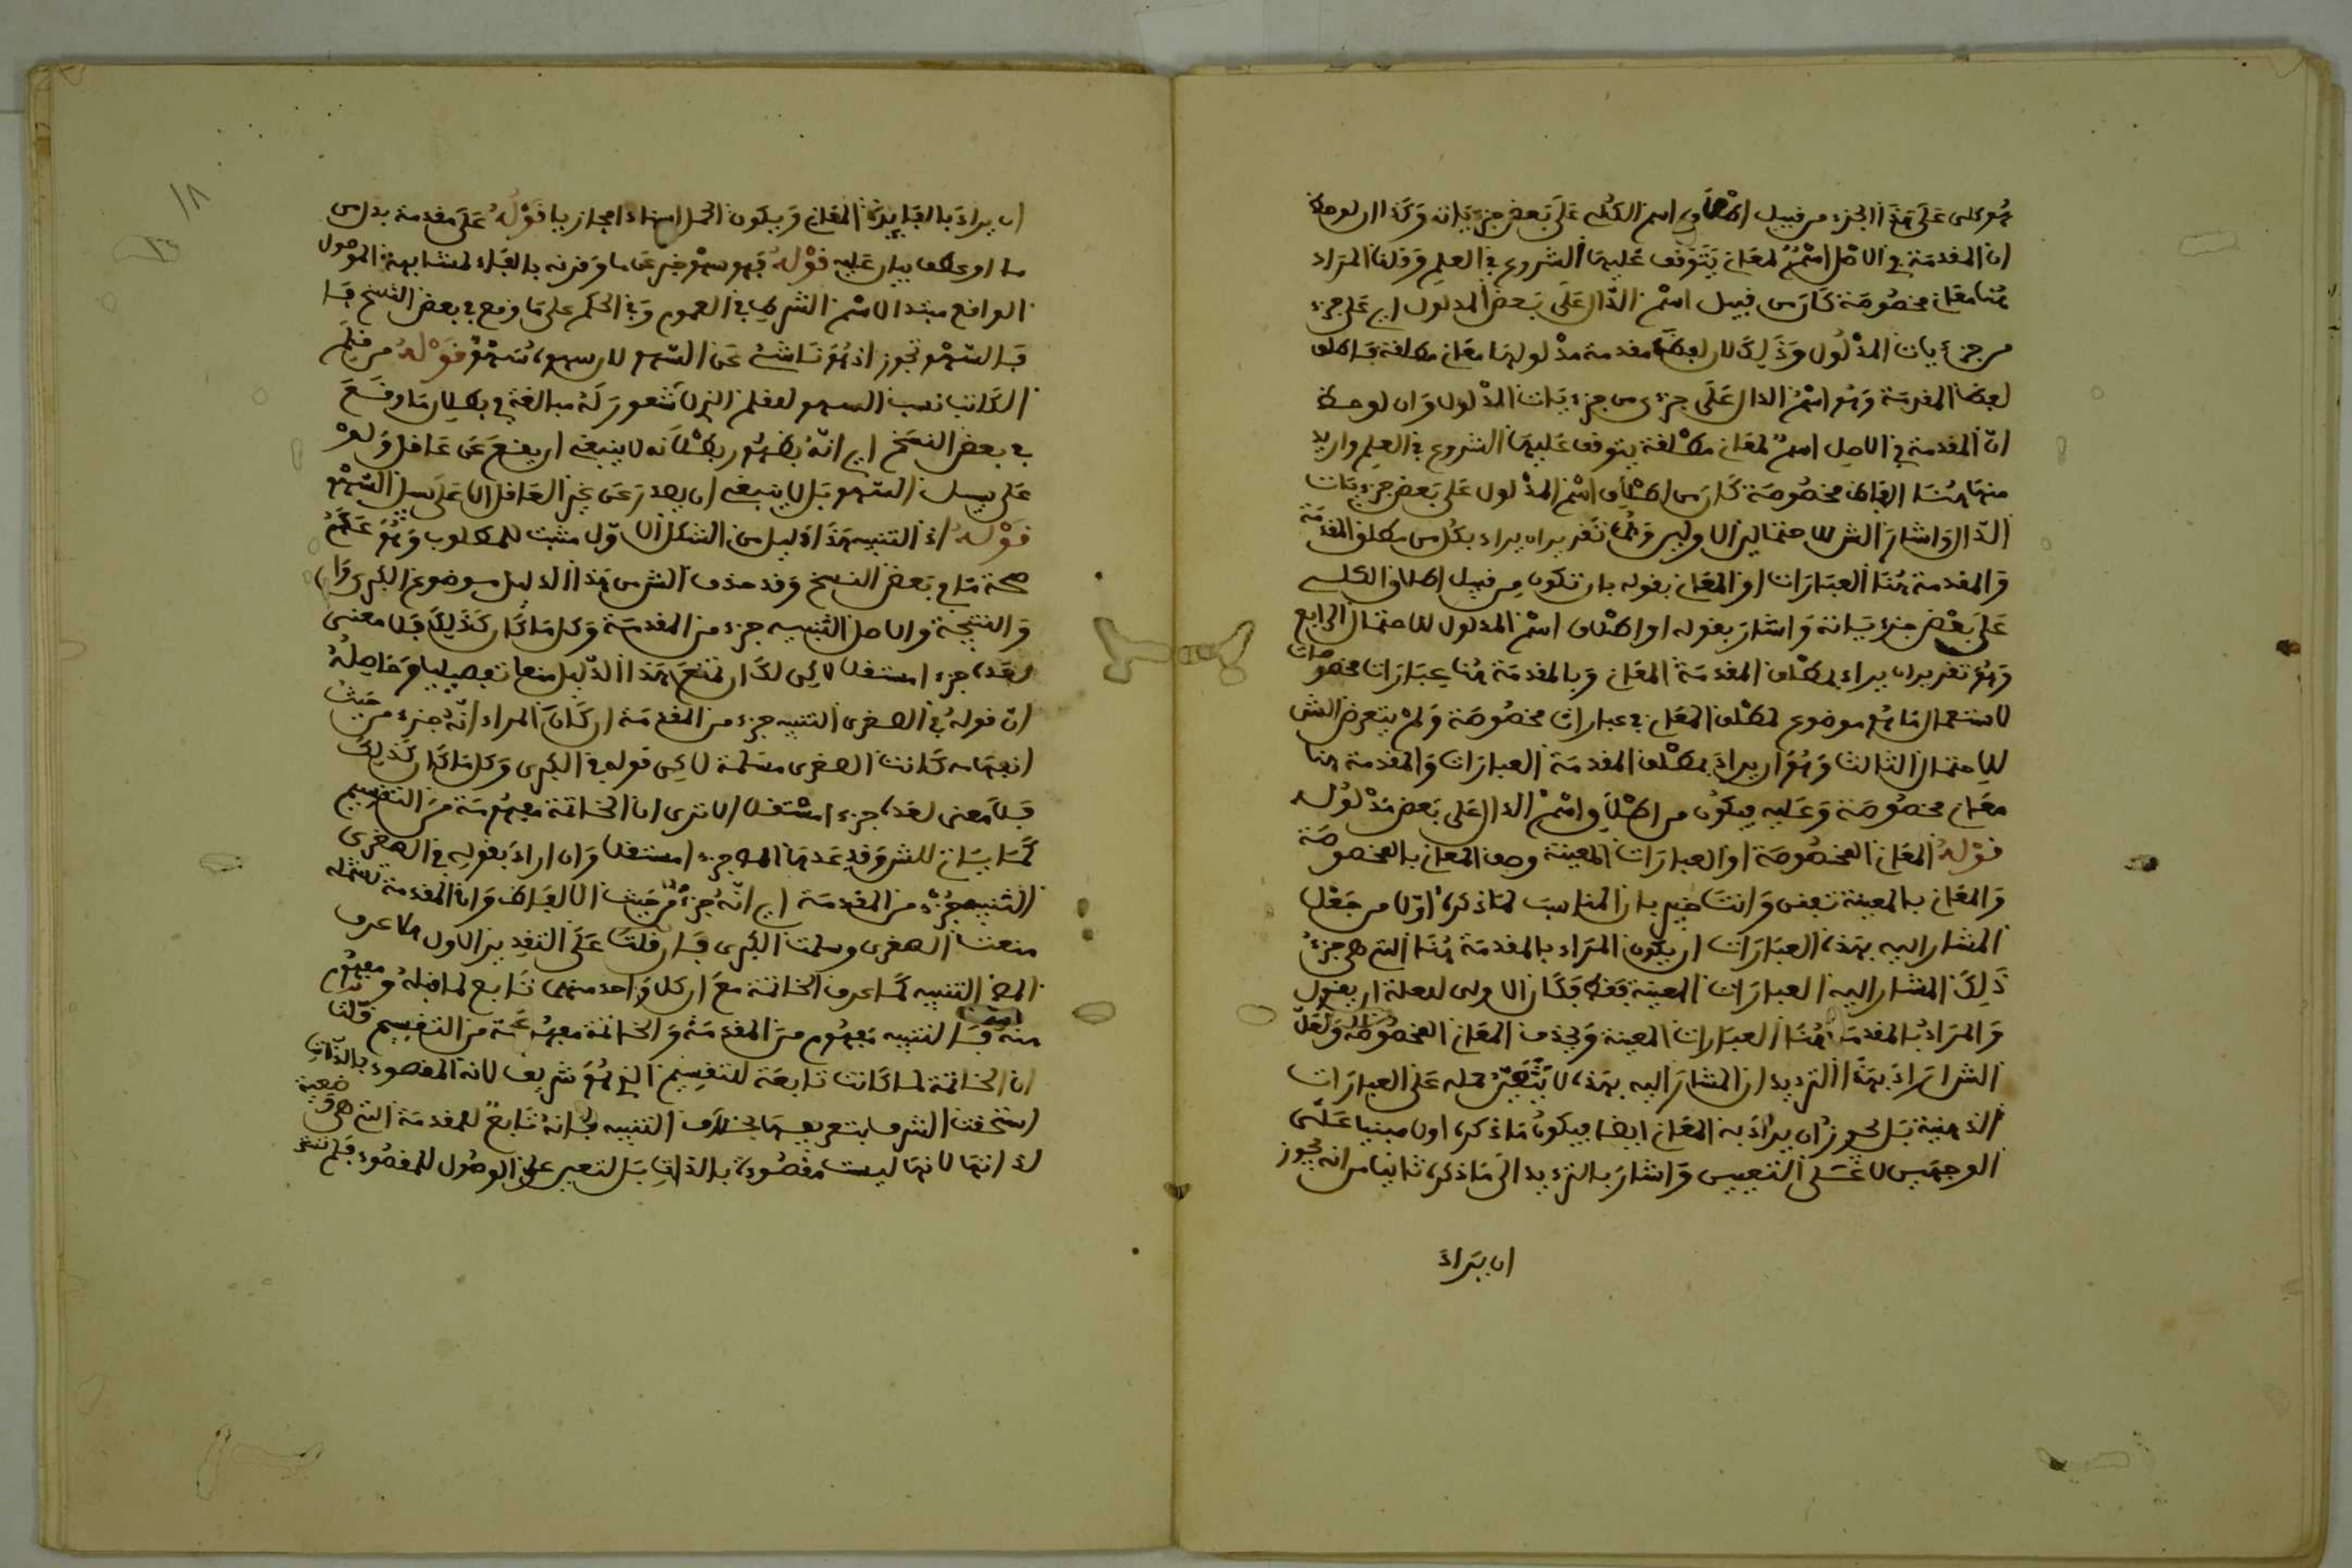 هو كلى على هذا الجزء من قبيل اطلاق اسم الكلى على بعض جزءياته وكذا ان لوحظ
ان المقدمة في الاصل اسم لمعان يتوقف عليها الشروع في العلم وقلنا المراد
هنا معان مخصوصة كان من قبيل اسم الدال على بعض المدلول اي على جزء
من جزءيات المدلول وذلك لان لفظ مقدمة مدلولها معان مطلقة فاطلق
لفظ المقدمة وهو اسم الدال على جزء من جزءيات المدلول وان لوحظ
ان المقدمة في الاصل اسم لمعان مطلقة يتوقف عليها الشروع في العلم واريد
منها هنا الفاظ مخصوصة كان من اطلاق اسم المدلول على بعض جزءيات
الدال واشار الش للاحتمالين الاولين وهما تقدير ان يراد بكل من مطلق المقدمة
والمقدمة هنا العبارات او المعان بقوله بان تكون من قبيل اطلاق الكلى
على بعض جزءياته واشار بقوله او اطلاق اسم المدلول للاحتمال الرابع
وهو تقدير ان يراد بمطلق المقدمة المعان وبالمقدمة هنا عبارات مخصوصات
لاستعمال ما هو موضوع لمطلق المعان في عبارات مخصوصة ولم يتعرض الش
للاحتمال الثالث وهو ان يراد بمطلق المقدمة العبارات والمقدمة هنا
معان مخصوصة وعليه فيكون من اطلاق اسم الدال على بعض مدلوله
قوله المعان المخصوصة او العبارات المعينة وصف المعان بالمخصوصة
والمعان بالمعينة تفنن وانت خبير بان المناسب لما ذكره اولا من جعل
المشار اليه بهذه العبارات ان يكون المراد بالمقدمة هنا التي هي جزء
ذلك المشار اليه العبارات المعينة فقط فكان الاولى لعله ان يقول
والمراد بالمقدمة هنا العبارات المعينة ويحذف المعان المخصوصة ولعل
الش اراد بهذا الترديد ان المشار اليه بهذه لا يتعين حمله على العبارات
الذهنية بل يجوز ان يراد به المعان ايضا فيكون ما ذكره اولا مبنيا على
الوجهين لا على التعيين واشار بالترديد الى ما ذكره ثانيا من انه يجوز
ان يراد
ان يراد بالفايدة المعان ويكون الحمل اسنادا مجازيا قوله على مقدمة بدل من
ما او عطف بيان عليه قوله فهو سهو خبر عن ما وقرنه بالفاء لمشابهة الموصول
الواقع مبتدا لاسم الشرط في العموم وفي الحكم على ما وقع في بعض النسخ فا
فالسهو تجوز اذ هو ناشئ عن السهو لا ن سهو قوله من قلم
الكاتب نسب السهو لقلم الذي لا شعور له مبالغة في بطلان ما وقع
في بعض النسخ اي انه بظهور بطلانه لا ينبغي ان يقع عن عاقل ولو
على سبيل السهو بل لا ينبغي ان يصدر عن غير العاقل الا على سبيل السهو
قوله اذ التنبيه هذا دليل من الشكل الاول مثبت للمطلوب وهو عدم
صحة ما في بعض النسخ وقد حذف الش من هذا الدليل موضوع الكبرى وا
والنتيجة والاصل التنبيه جزء من المقدمة وكل ما كان كذلك فلا معنى
لعده جزءا مستقلا لكن لك ان تمنع هذا الدليل منعا تفصيليا وحاصله
ان قوله في الصغرى التنبيه جزء من المقدمة ان كان المراد انه جزء من حيث
كانت الصغرى مسلمة لاكن قوله في الكبرى وكل ما كان كذلك
فلا معنى لعده جزءا مستقلا الا ترى ان الخاتمة مفهومة من التقسيم
كما يات للش وقد عدها المص جزءا مستقلا وان اراد بقوله في الصغرى
التنبيه جزء من المقدمة اي انه جزء من حيث الالفاظ وان المقدمة تشمله
منعت الصغرى وسلمت الكبرى فان قلت على التقدير الاول هلا عرف
المص التنبيه كما عرف الخاتمة مع ان كلا واحد منهما تابع لما قبله ومفهوم
منه فالتنبيه مفهوم من المقدمة والخاتمة مفهومة من التقسيم قلنا
ان الخاتمة لما كانت تابعة للتقسيم الذي هو شريف لانه المقصود بالذات
استحقت الشرف بتعريفها بخلاف التنبيه فانه تابع للمقدمة التي هي ضعيفة
لذاتها لانها ليست مقصودة بالذات بل لتعين على الوصول للمقصود فلم